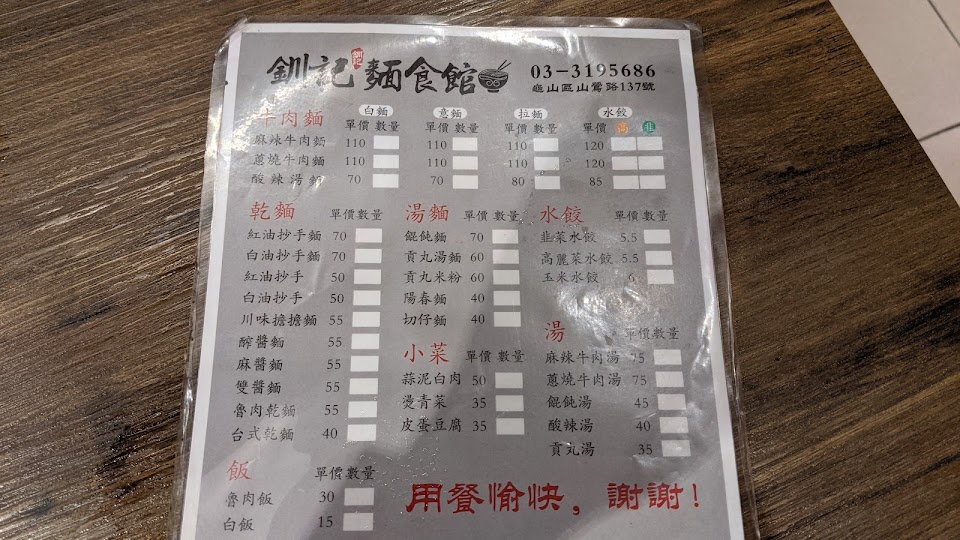 釧記 釧記 麵食館 03-3195686
龜山區山鶯路137號
牛肉麵 白麵 意麵 拉麵 水餃
單價 數量 單價 數量 單價 數量 單價 高 韭
麻辣牛肉麵 110 110 110 120
蔥燒牛肉麵 110 110 110 120
酸辣湯麵 70 70 80 85
乾麵 單價 數量
紅油抄手麵 70
白油抄手麵 70
紅油抄手 50
白油抄手 50
川味擔擔麵 55
醡醬麵 55
麻醬麵 55
雙醬麵 55
魯肉乾麵 55
台式乾麵 40
飯 單價 數量
魯肉飯 30
白飯 15
湯麵 單價 數量
餛飩麵 70
貢丸湯麵 60
貢丸米粉 60
陽春麵 40
切仔麵 40
小菜 單價 數量
蒜泥白肉 50
燙青菜 35
皮蛋豆腐 35
水餃 單價 數量
韭菜水餃 5.5
高麗菜水餃 5.5
玉米水餃 6
湯 單價 數量
麻辣牛肉湯 75
蔥燒牛肉湯 75
餛飩湯 45
酸辣湯 40
貢丸湯 35
用餐愉快，謝謝！